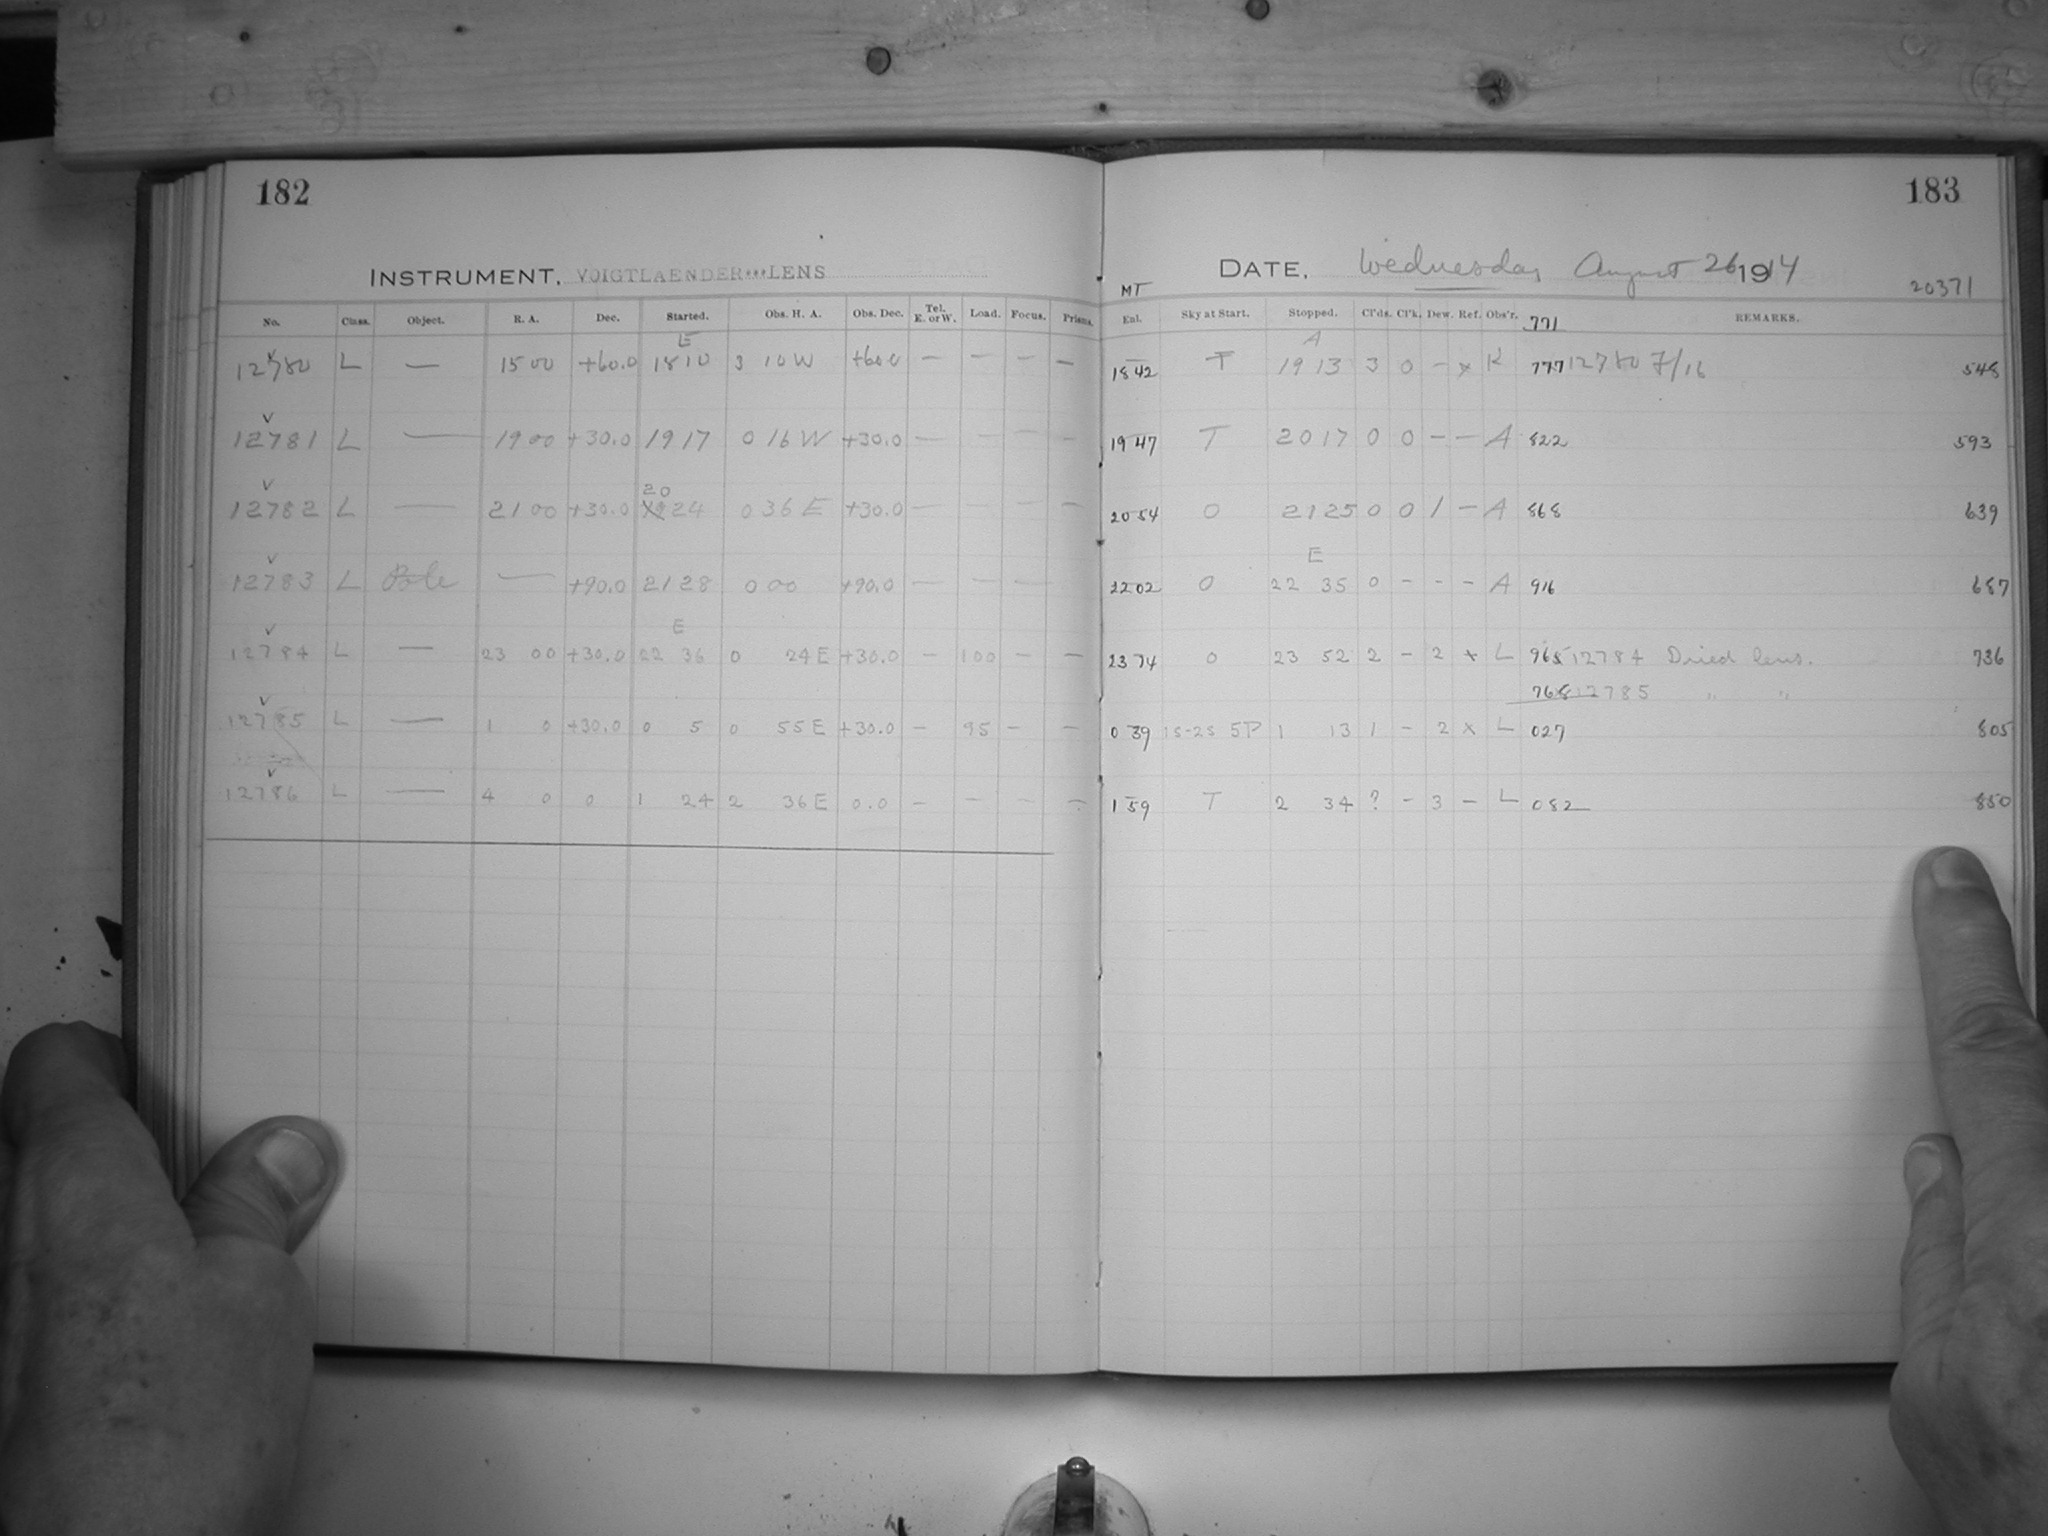 182
INSTRUMENT, VOIGTLAENDER***LENS
No. Class. Object. R. A. Dec. Started. Obs. H. A. Obs. Dec. Tel. E. or W. Load. Focus. Prisms.
E
12780 L — 15 00 +60.0 18 10 3 10 W +60.0 — — — —
12781 L — 19 00 +30.0 19 17 0 16 W +30.0 — — — —
20
12782 L — 21 00 +30.0 24 0 36 E +30.0 — — —
12783 L Pole — +90.0 21 28 0 00 +90.0 — — —
E
12784 L — 23 00 +30.0 22 36 0 24 E +30.0 — 100 — —
12785 L — 1 0 +30.0 0 5 0 55 E +30.0 — 95 — —
12786 L — 4 0 0 1 24 2 36 E 0.0 — — — —
183
DATE, Wednesday August 26 1914
MT 20371
Exl. Sky at Start. Stopped. Cl'ds. Cl'k. Dew. Ref. Obs'r. 771 REMARKS.
A
18 42 T 19 13 3 0 – x K 777 12780 F/16 548
19 47 T 20 17 0 0 – – A 822 593
20 54 0 21 25 0 0 1 – A 868 639
E
22 02 0 22 35 0 – – – A 916 687
23 14 0 23 52 2 – 2 x L 965 12784 Dried lens. 736
12785 " "
0 39 15-25 5P 1 13 1 – 2 x L 027 805
1 59 T 2 34 ? – 3 – L 082 850